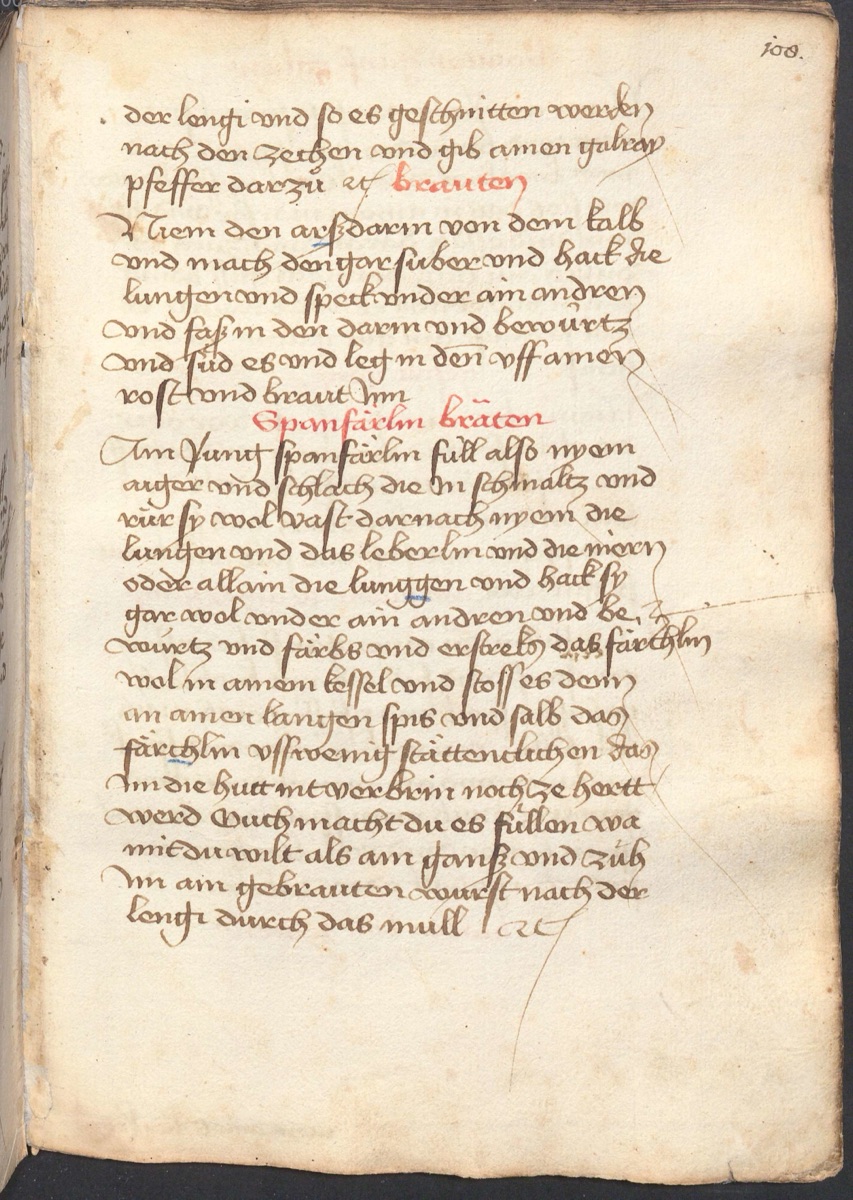 108.
der lengi vnd so es geschnitten werden
nach den zechen vnd gib ainen galray
pfeffer darzů ꝛc brauten
Niem den arßdarm von dem kalb
vnd mach den gar suber vnd hack die
lungen vnd speck vnder ain andren
vnd faß in den darm vnd bewürtz
vnd süd es vnd leg in deñ vff ainen
rost vnd braut Inn
Spanfärlin bräten
Ain Jung spanfärlin füll also nyem
aiger vnd schlach die In schmaltz vnd
rür sy wol vast darnach nyem die
lungen vnd das leberlin vnd die niern
oder allain die lunggen vnd hack sy
gar wol vnder ain andren vnd be
würtz vnd färbs vnd das färchlin
wol in ainem kessel vnd stoss es denn
an ainen langen spis vnd salb das
färchlin vsswenig stättenclichen das
Im die hutt nit verbrin noch ze hertt
werd Ouch macht du es füllen wa
mit du wilt als ain ganß vnd züh
Im ain gebrauten wurst nach der
lengi durch das mull ꝛc